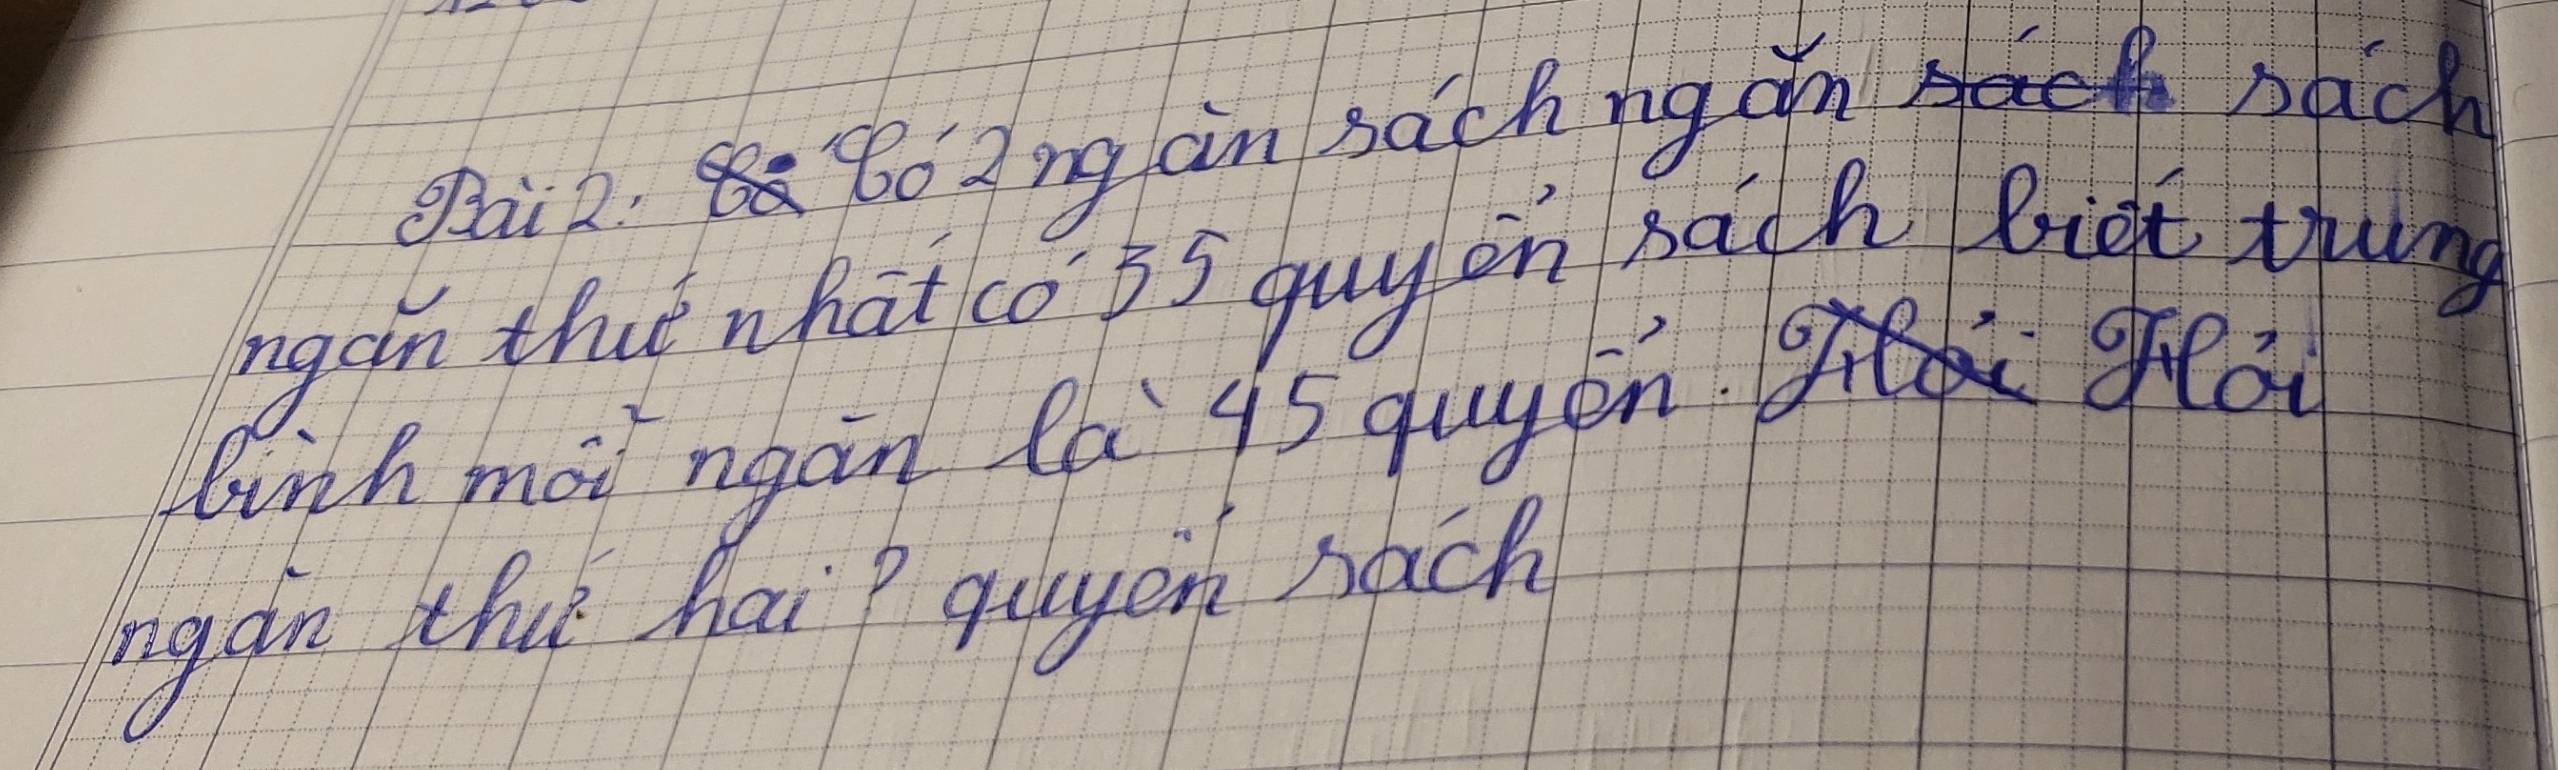 Bài 2: Có 2 ngăn sách ngăn sách sách
ngăn thứ nhất có 35 quyển sách biết trung
bình mỗi ngăn là 45 quyển. Hỏi Hỏi
ngăn thứ hai ? quyển sách